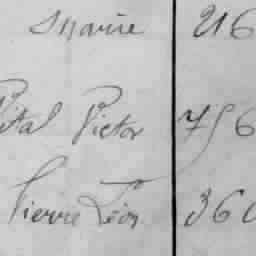 Marie 216
Vital Victor 756
Pierre Léon 360